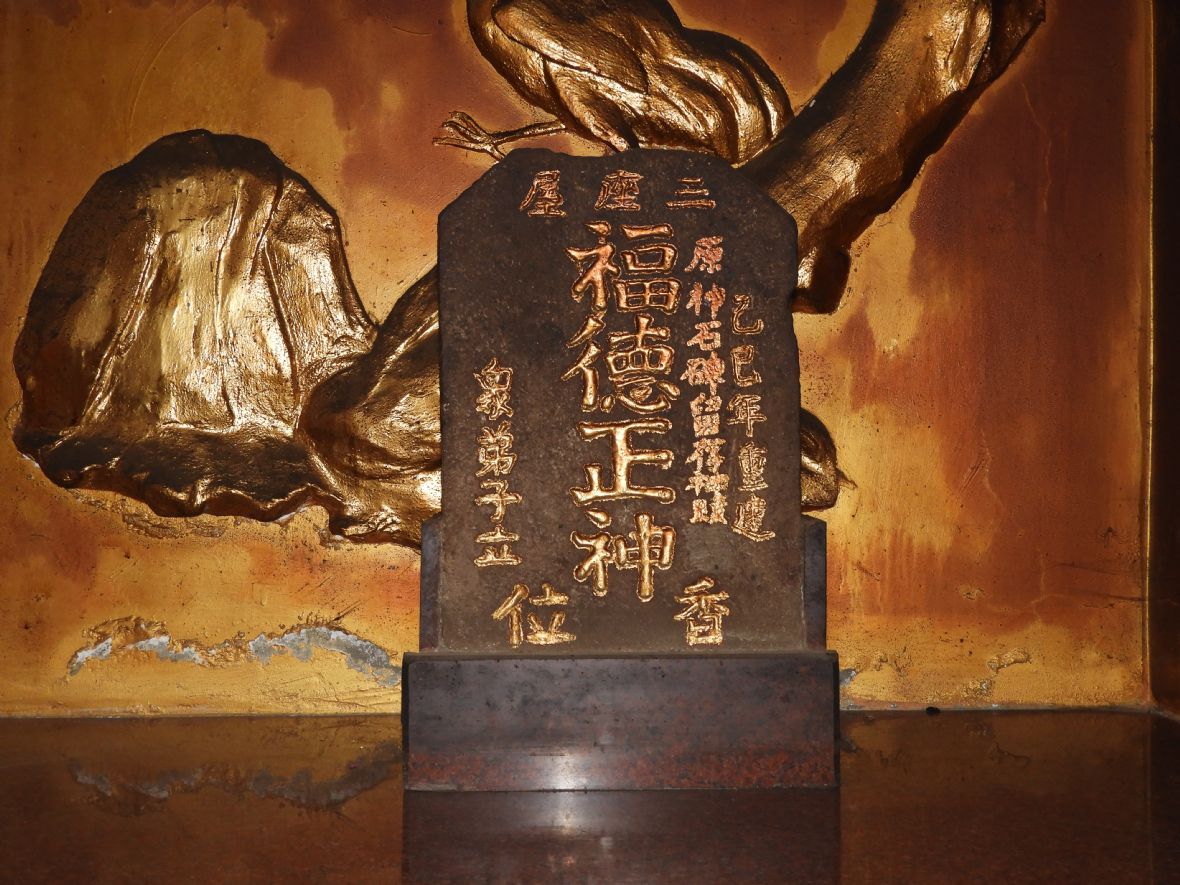 三座屋
己巳年重建
原神石碑留存
福德正神
眾弟子立
香位